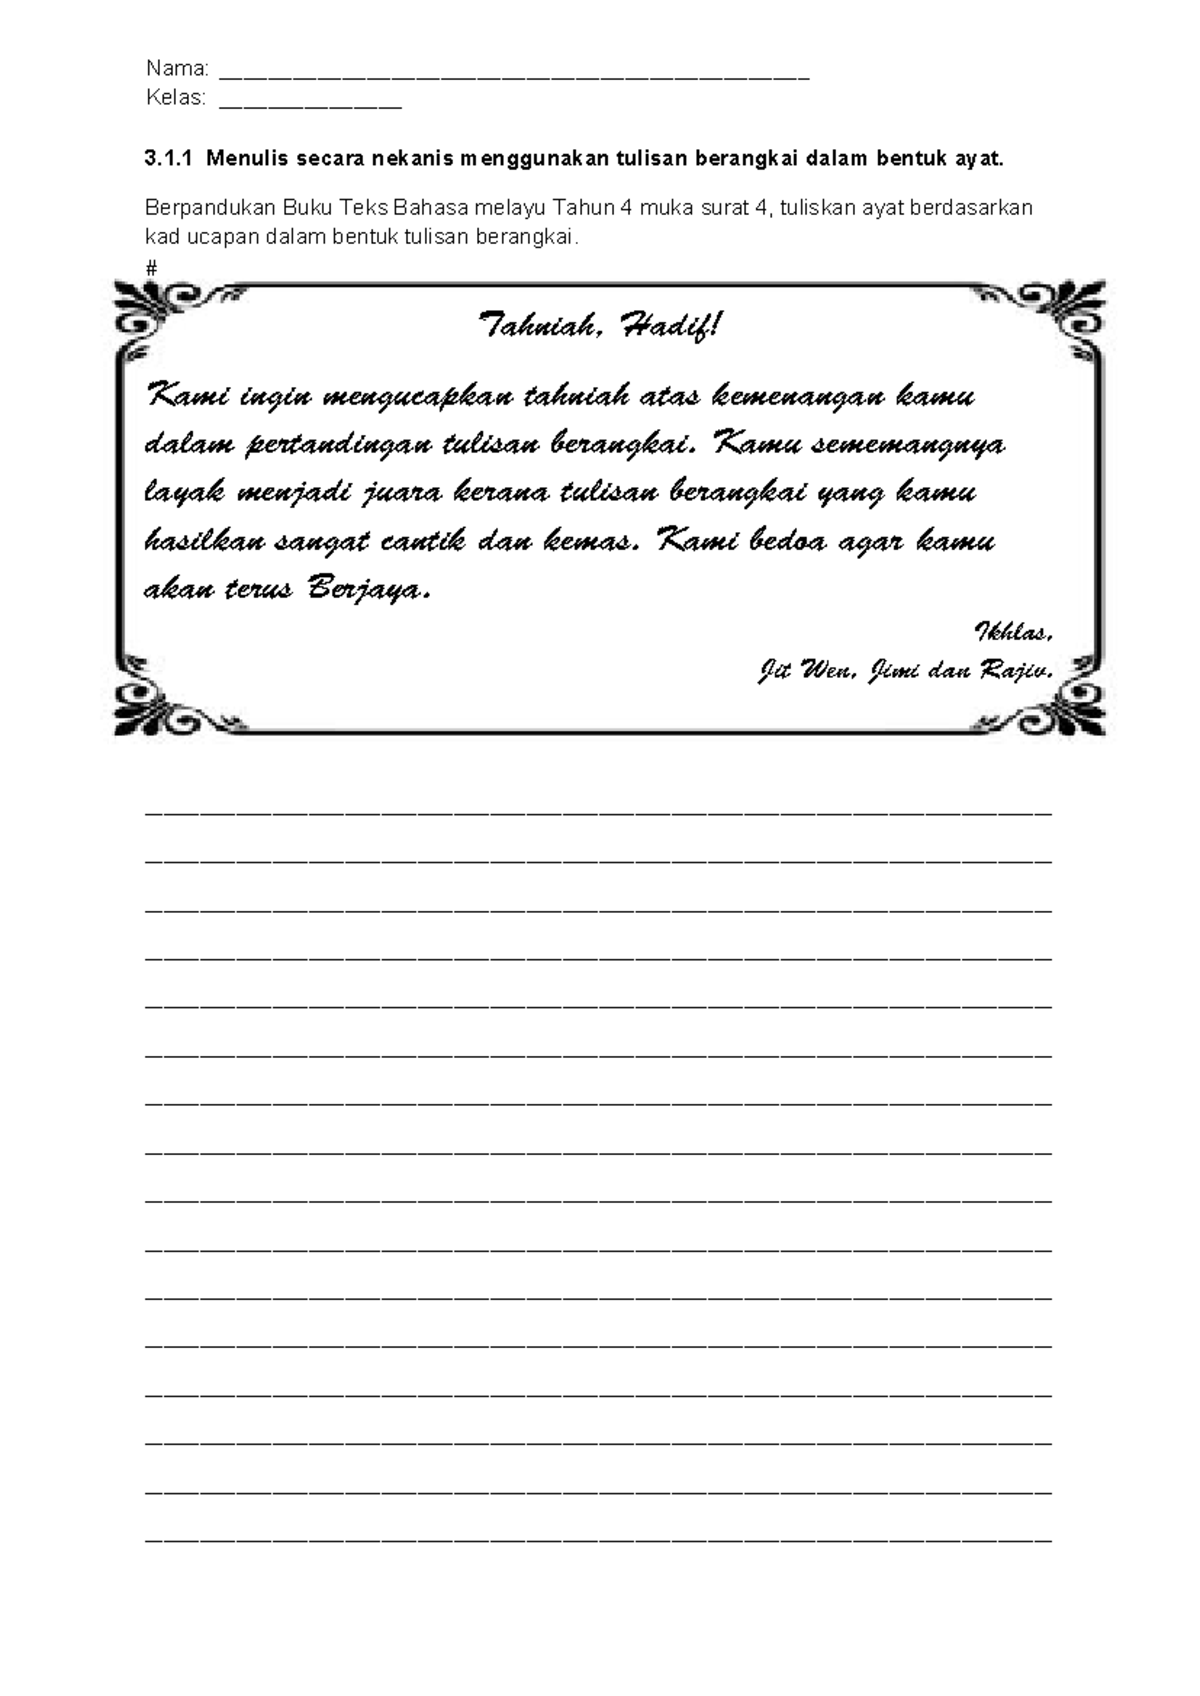 Nama: ________________________________________________
Kelas: _______________
3.1.1 Menulis secara nekanis menggunakan tulisan berangkai dalam bentuk ayat.
Berpandukan Buku Teks Bahasa melayu Tahun 4 muka surat 4, tuliskan ayat berdasarkan
kad ucapan dalam bentuk tulisan berangkai.
#
Tahniah, Hadif!
Kami ingin mengucapkan tahniah atas kemenangan kamu
dalam pertandingan tulisan berangkai. Kamu sememangnya
layak menjadi juara kerana tulisan berangkai yang kamu
hasilkan sangat cantik dan kemas. Kami bedoa agar kamu
akan terus Berjaya.
Ikhlas,
Jit Wen, Jimi dan Rajiv.